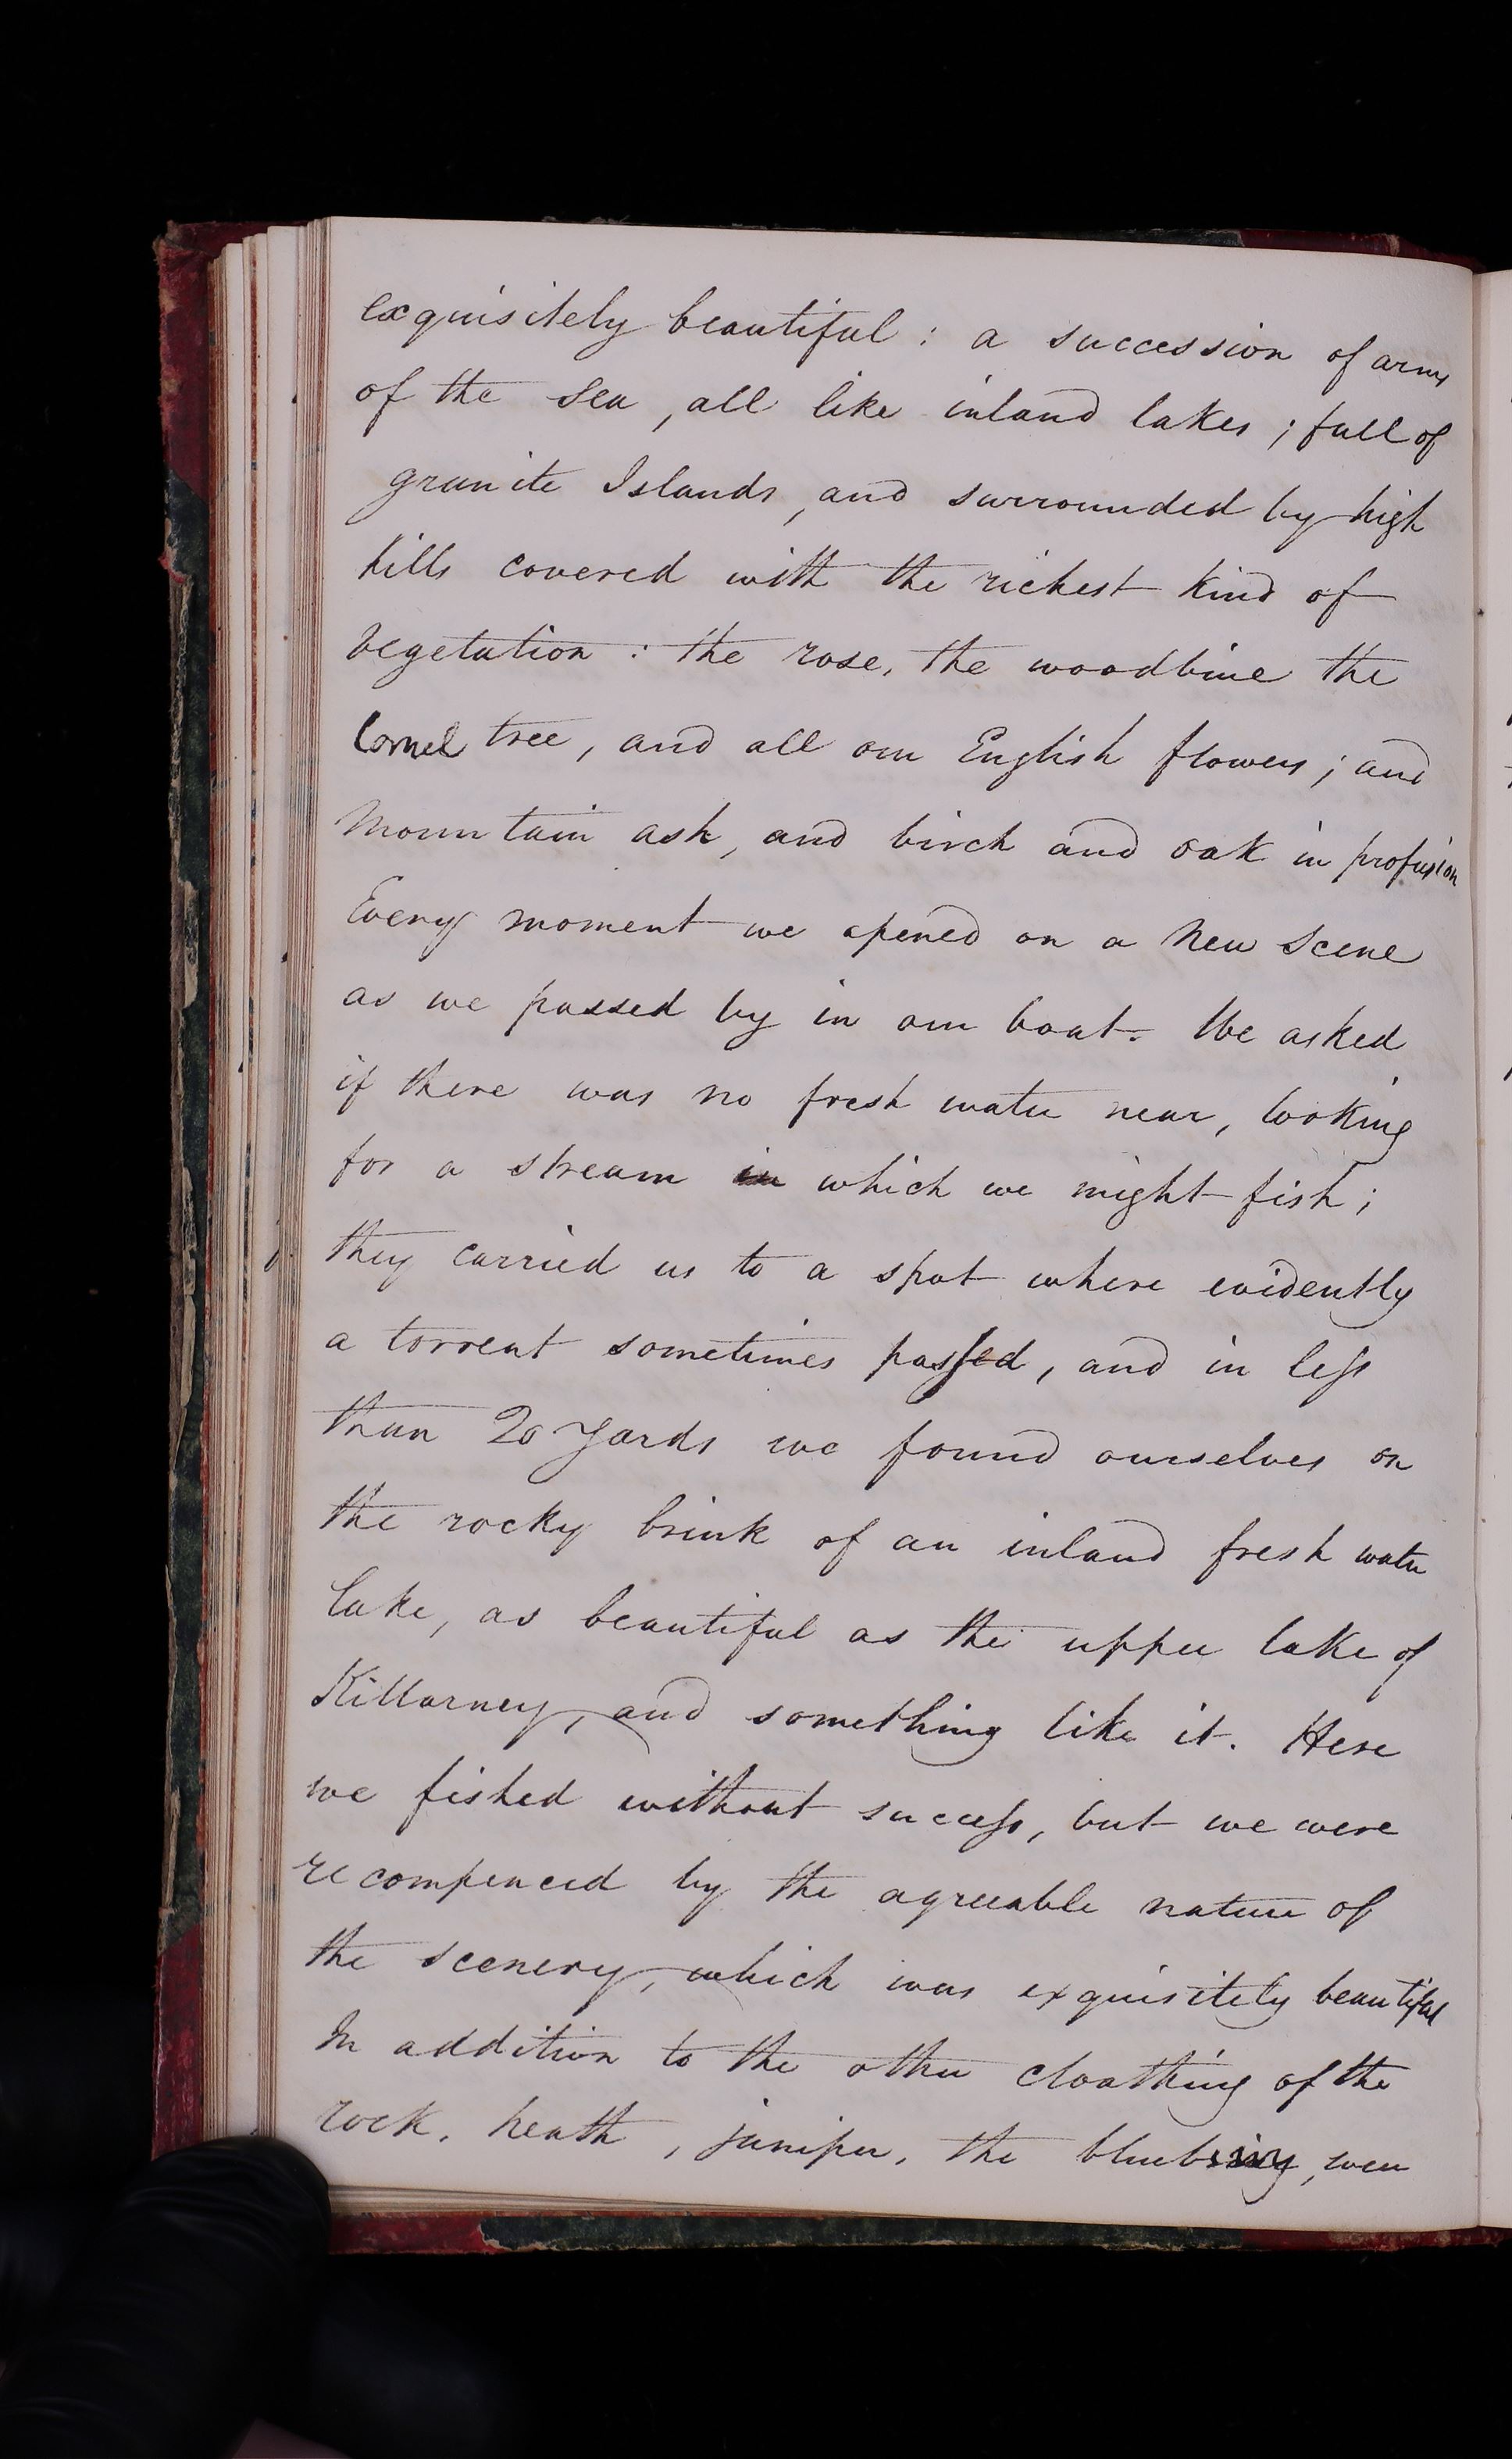 exquisitely beautiful : a succession of arms
of the sea, all like inland lakes ; full of
granite Islands, and surrounded by high
hills covered with the richest kind of
vegetation : the rose, the woodbine the
Cornel tree, and all our English flowers ; and
Mountain ash, and birch and oak in profusion
Every moment we opened on a new scene
as we passed by in our boat. We asked
if there was no fresh water near, looking
for a stream in which we might fish ;
they carried us to a spot where evidently
a torrent sometimes passed, and in less
than 20 yards we found ourselves on
the rocky brink of an inland fresh water
lake, as beautiful as the upper lake of
Killarney, and something like it. Here
we fished without success, but we were
recompenced by the agreeable nature of
the scenery, which was exquisitely beautiful
In addition to the other cloathing of the
rock, heath, juniper, the blueberry, were